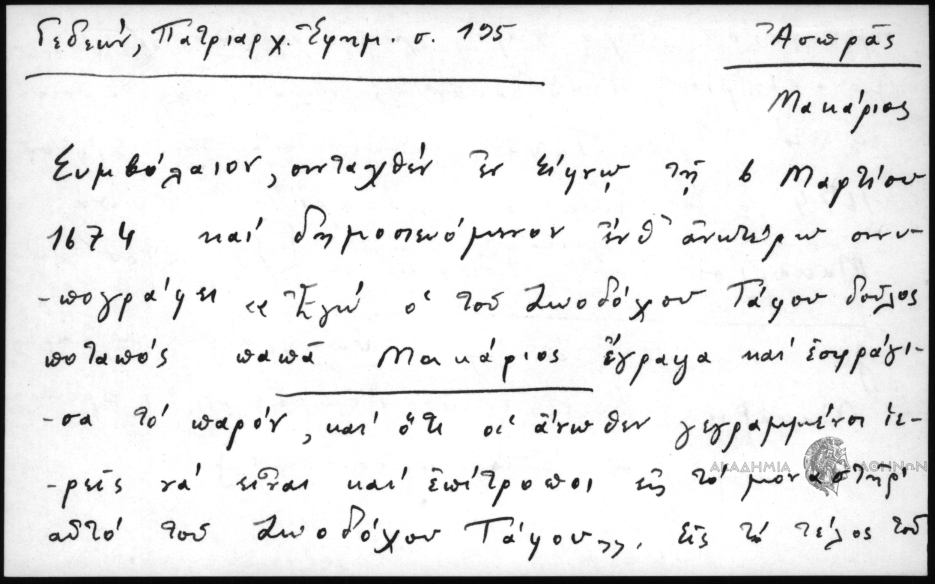 Γεδεών, Πατριαρχ. Ἐφημ. σ. 195
Ἀσπρᾶς
Μακάριος
Συμβόλαιον, συνταχθέν ἐν Σίφνῳ τῇ 6 Μαρτίου
1674 καί δημοσιευόμενον ἔνθ' ἀνωτέρω συνυ-
-πογράφει «Ἐγώ ὁ τοῦ Ζωοδόχου Τάφου δοῦλος
ποταπός παπᾶ Μακάριος ἔγραψα καί ἐσφράγι-
-σα τό παρόν, καί ὅτι οἱ ἄνωθεν γεγραμμένοι ἱε-
-ρεῖς νά εἶναι καί ἐπίτροποι εἰς τό μοναστῆρι
αὐτό τοῦ Ζωοδόχου Τάφου», εἰς τό τέλος τοῦ
ΑΚΑΔΗΜΙΑ ΑΘΗΝΩΝ